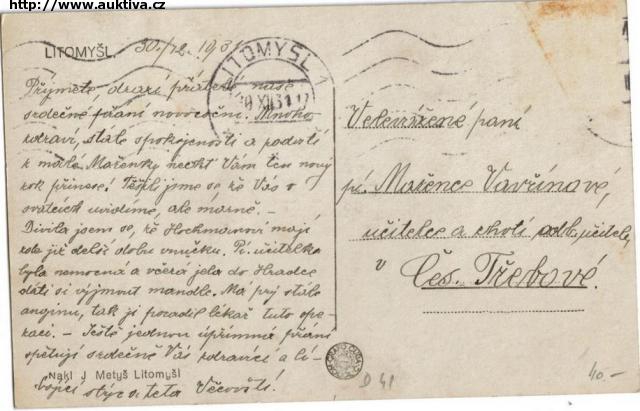 http://www.auktiva.cz
LITOMYŠL. 30./12. 1931
LITOMYŠL 1
Přijměte drazí přátelé naše
srdečné přání novoroční. Mnoho
zdraví, stále spokojenosti a radosti
z malé Mařenky nechť Vám ten nový
rok přinese! Těšili jsme se, že Vás o
svátcích uvidíme, ale marně. –
Divila jsem se, že mají
již delší dobu vnučku. Pí. učitelka
byla nemocná a včera jela do Hradce
dáti si vyjmout mandle. Má prý stále
anginu, tak jí poradil lékař tuto ope-
raci. – Ještě jednou upřímná přání
opětují srdečně Vás zdravící a lí-
bající strýc a teta
Nakl J Metyš Litomyšl
Velevážené paní
pí. Mařence Vavřínové,
učitelce a choti odb. učitele
v
Čes. Třebové.
D 41
40.-